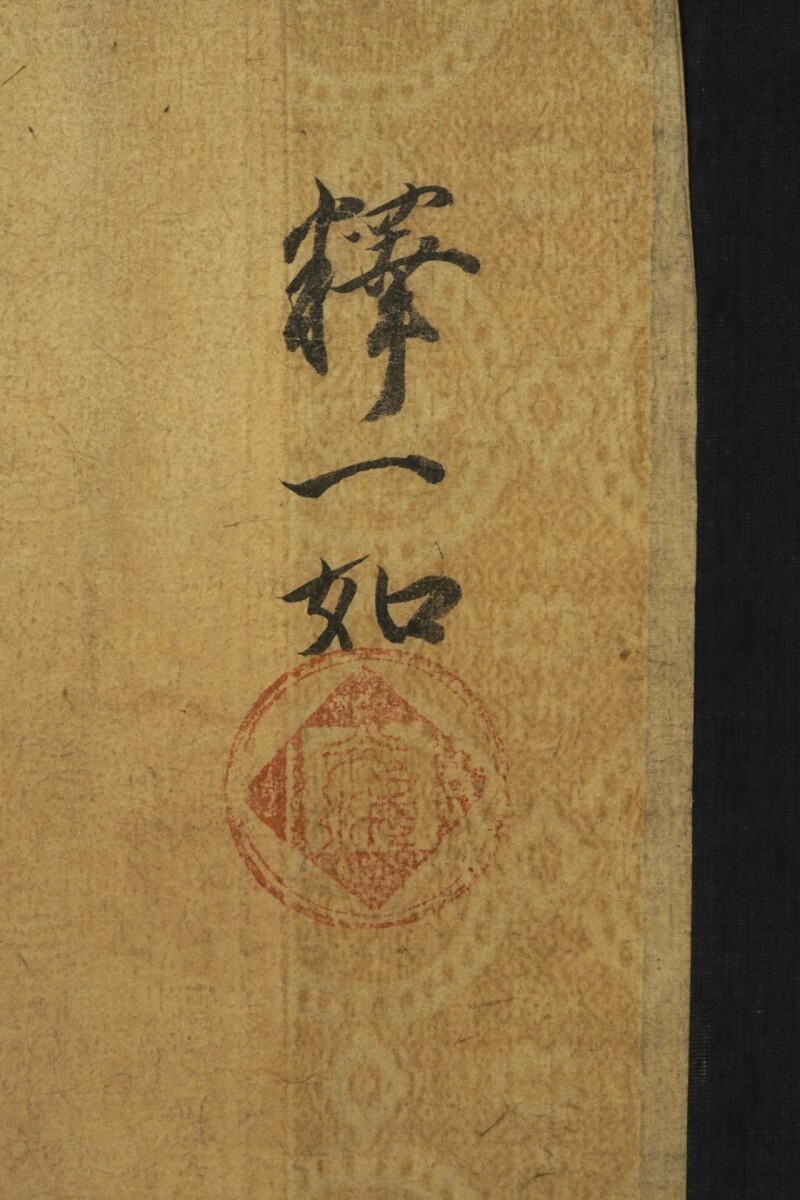 釋一如